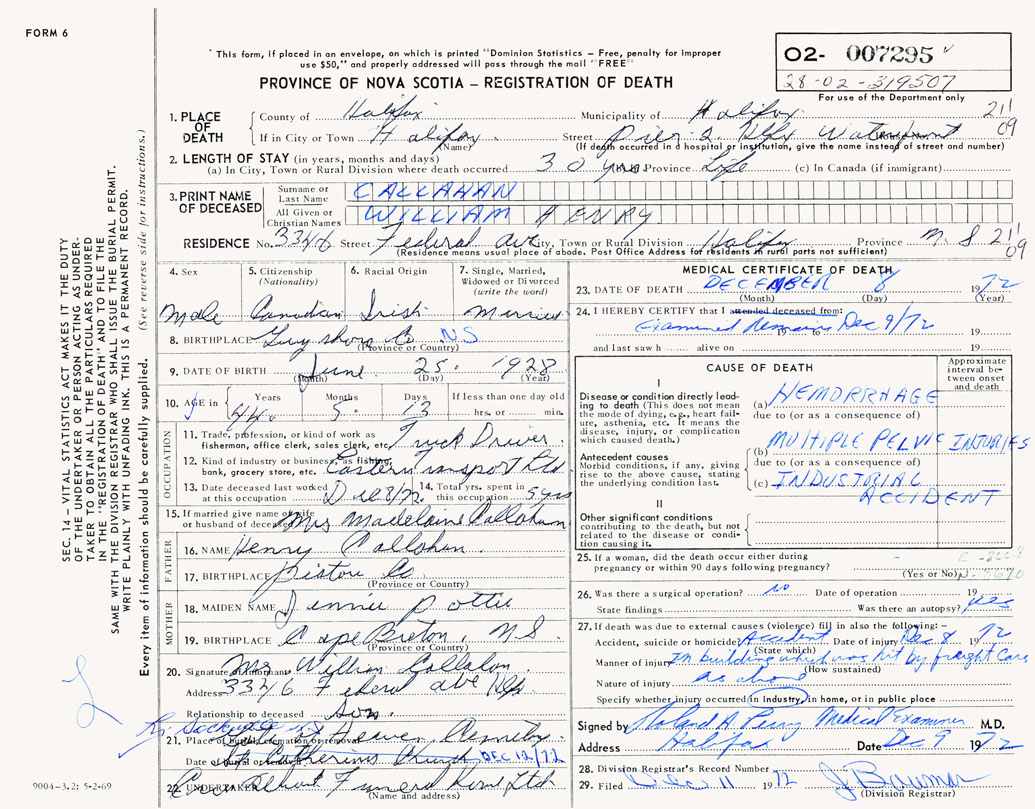 FORM 6
"This form, if placed in an envelope, on which is printed "Dominion Statistics – Free, penalty for improper
use $50," and properly addressed will pass through the mail "FREE"
PROVINCE OF NOVA SCOTIA – REGISTRATION OF DEATH
O2- 007295
28-02-319507
For use of the Department only
1. PLACE OF DEATH
County of Halifax Municipality of Halifax 21
09
If in City or Town Halifax Street Pier 2 Hfx Waterfront
(Name)
(If death occurred in a hospital or institution, give the name instead of street and number)
2. LENGTH OF STAY (in years, months and days)
(a) In City, Town or Rural Division where death occurred 30 yrs Province Life (c) In Canada (if immigrant)
3. PRINT NAME OF DECEASED
Surname or Last Name CALLAHAN
All Given or Christian Names WILLIAM HENRY
RESIDENCE No. 3346 Street Federal Ave City, Town or Rural Division Halifax Province N.S 21
09
(Residence means usual place of abode. Post Office Address for residents in rural parts not sufficient)
4. Sex
Male
5. Citizenship (Nationality)
Canadian
6. Racial Origin
Irish
7. Single, Married, Widowed or Divorced (write the word)
Married
8. BIRTHPLACE Guysboro Co N.S.
(Province or Country)
9. DATE OF BIRTH June 25 1928
(Month) (Day) (Year)
10. AGE in Years Months Days If less than one day old
44 5 13 hrs. or min.
OCCUPATION
11. Trade, profession, or kind of work as
fisherman, office clerk, sales clerk, etc. Truck Driver
12. Kind of industry or business, as fishing,
bank, grocery store, etc. Eastern Transport Ltd
13. Date deceased last worked
at this occupation Dec 8/72
14. Total yrs. spent in
this occupation 5 yrs
15. If married give name of wife
or husband of deceased Mrs Madelaine Callahan
FATHER
16. NAME Henry Callahan
17. BIRTHPLACE Pictou Co
(Province or Country)
MOTHER
18. MAIDEN NAME Jennie Pottie
19. BIRTHPLACE Cape Breton, N.S
(Province or Country)
20. Signature of informant Mrs William Callahan
Address 3346 Federal Ave Hfx
Relationship to deceased Son
21. Place of burial, cremation or removal Gate of Heaven Cemetery
Date of burial or removal St Catherines Church DEC 12/72
22. UNDERTAKER Funeral Home Ltd
(Name and address)
MEDICAL CERTIFICATE OF DEATH
23. DATE OF DEATH DECEMBER 8 1972
(Month) (Day) (Year)
24. I HEREBY CERTIFY that I attended deceased from:
Examined Remains Dec 9/72
19 to 19
and last saw h alive on 19
CAUSE OF DEATH
Approximate interval between onset and death
I
Disease or condition directly leading to death (This does not
mean the mode of dying, e.g., heart failure, asthenia, etc. It means the
disease, injury, or complication which caused death.)
(a) HEMORRHAGE
due to (or as a consequence of)
Antecedent causes
Morbid conditions, if any, giving
rise to the above cause, stating
the underlying condition last.
(b) MULTIPLE PELVIC INJURIES
due to (or as a consequence of)
(c) INDUSTRIAL
ACCIDENT
II
Other significant conditions
contributing to the death, but not
related to the disease or condition causing it.
25. If a woman, did the death occur either during
pregnancy or within 90 days following pregnancy? -
(Yes or No)
26. Was there a surgical operation? no Date of operation 19
State findings Was there an autopsy? yes
27. If death was due to external causes (violence) fill in also the following: –
Accident, suicide or homicide? Accident Date of injury Dec 8 1972
(State which)
Manner of injury In building which was hit by freight car
(How sustained)
Nature of injury as above
Specify whether injury occurred in industry, in home, or in public place
Signed by Roland A. Perry Medical Examiner M.D.
Address Halifax Date Dec 9 1972
28. Division Registrar's Record Number
29. Filed Dec 11 1972
(Division Registrar)
SEC. 14 – VITAL STATISTICS ACT MAKES IT THE DUTY
OF THE UNDERTAKER OR PERSON ACTING AS UNDERTAKER
TO OBTAIN ALL THE PARTICULARS REQUIRED
IN THE "REGISTRATION OF DEATH" AND TO FILE THE
SAME WITH THE DIVISION REGISTRAR WHO SHALL ISSUE THE BURIAL PERMIT.
WRITE PLAINLY WITH UNFADING INK. THIS IS A PERMANENT RECORD.
Every item of information should be carefully supplied. (See reverse side for instructions.)
9004-3.2: 5-2-69